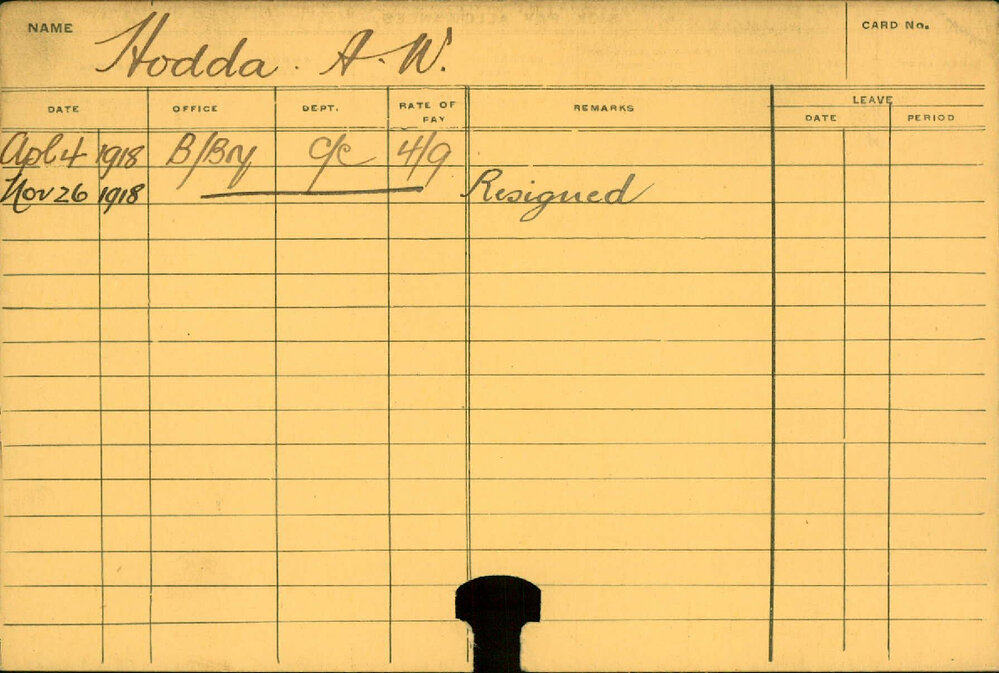 NAME Hodda. A. W. CARD No.
DATE OFFICE DEPT. RATE OF PAY REMARKS LEAVE
DATE PERIOD
Apl 4 1918 B/Bry C/C 4/9
Nov 26 1918 Resigned